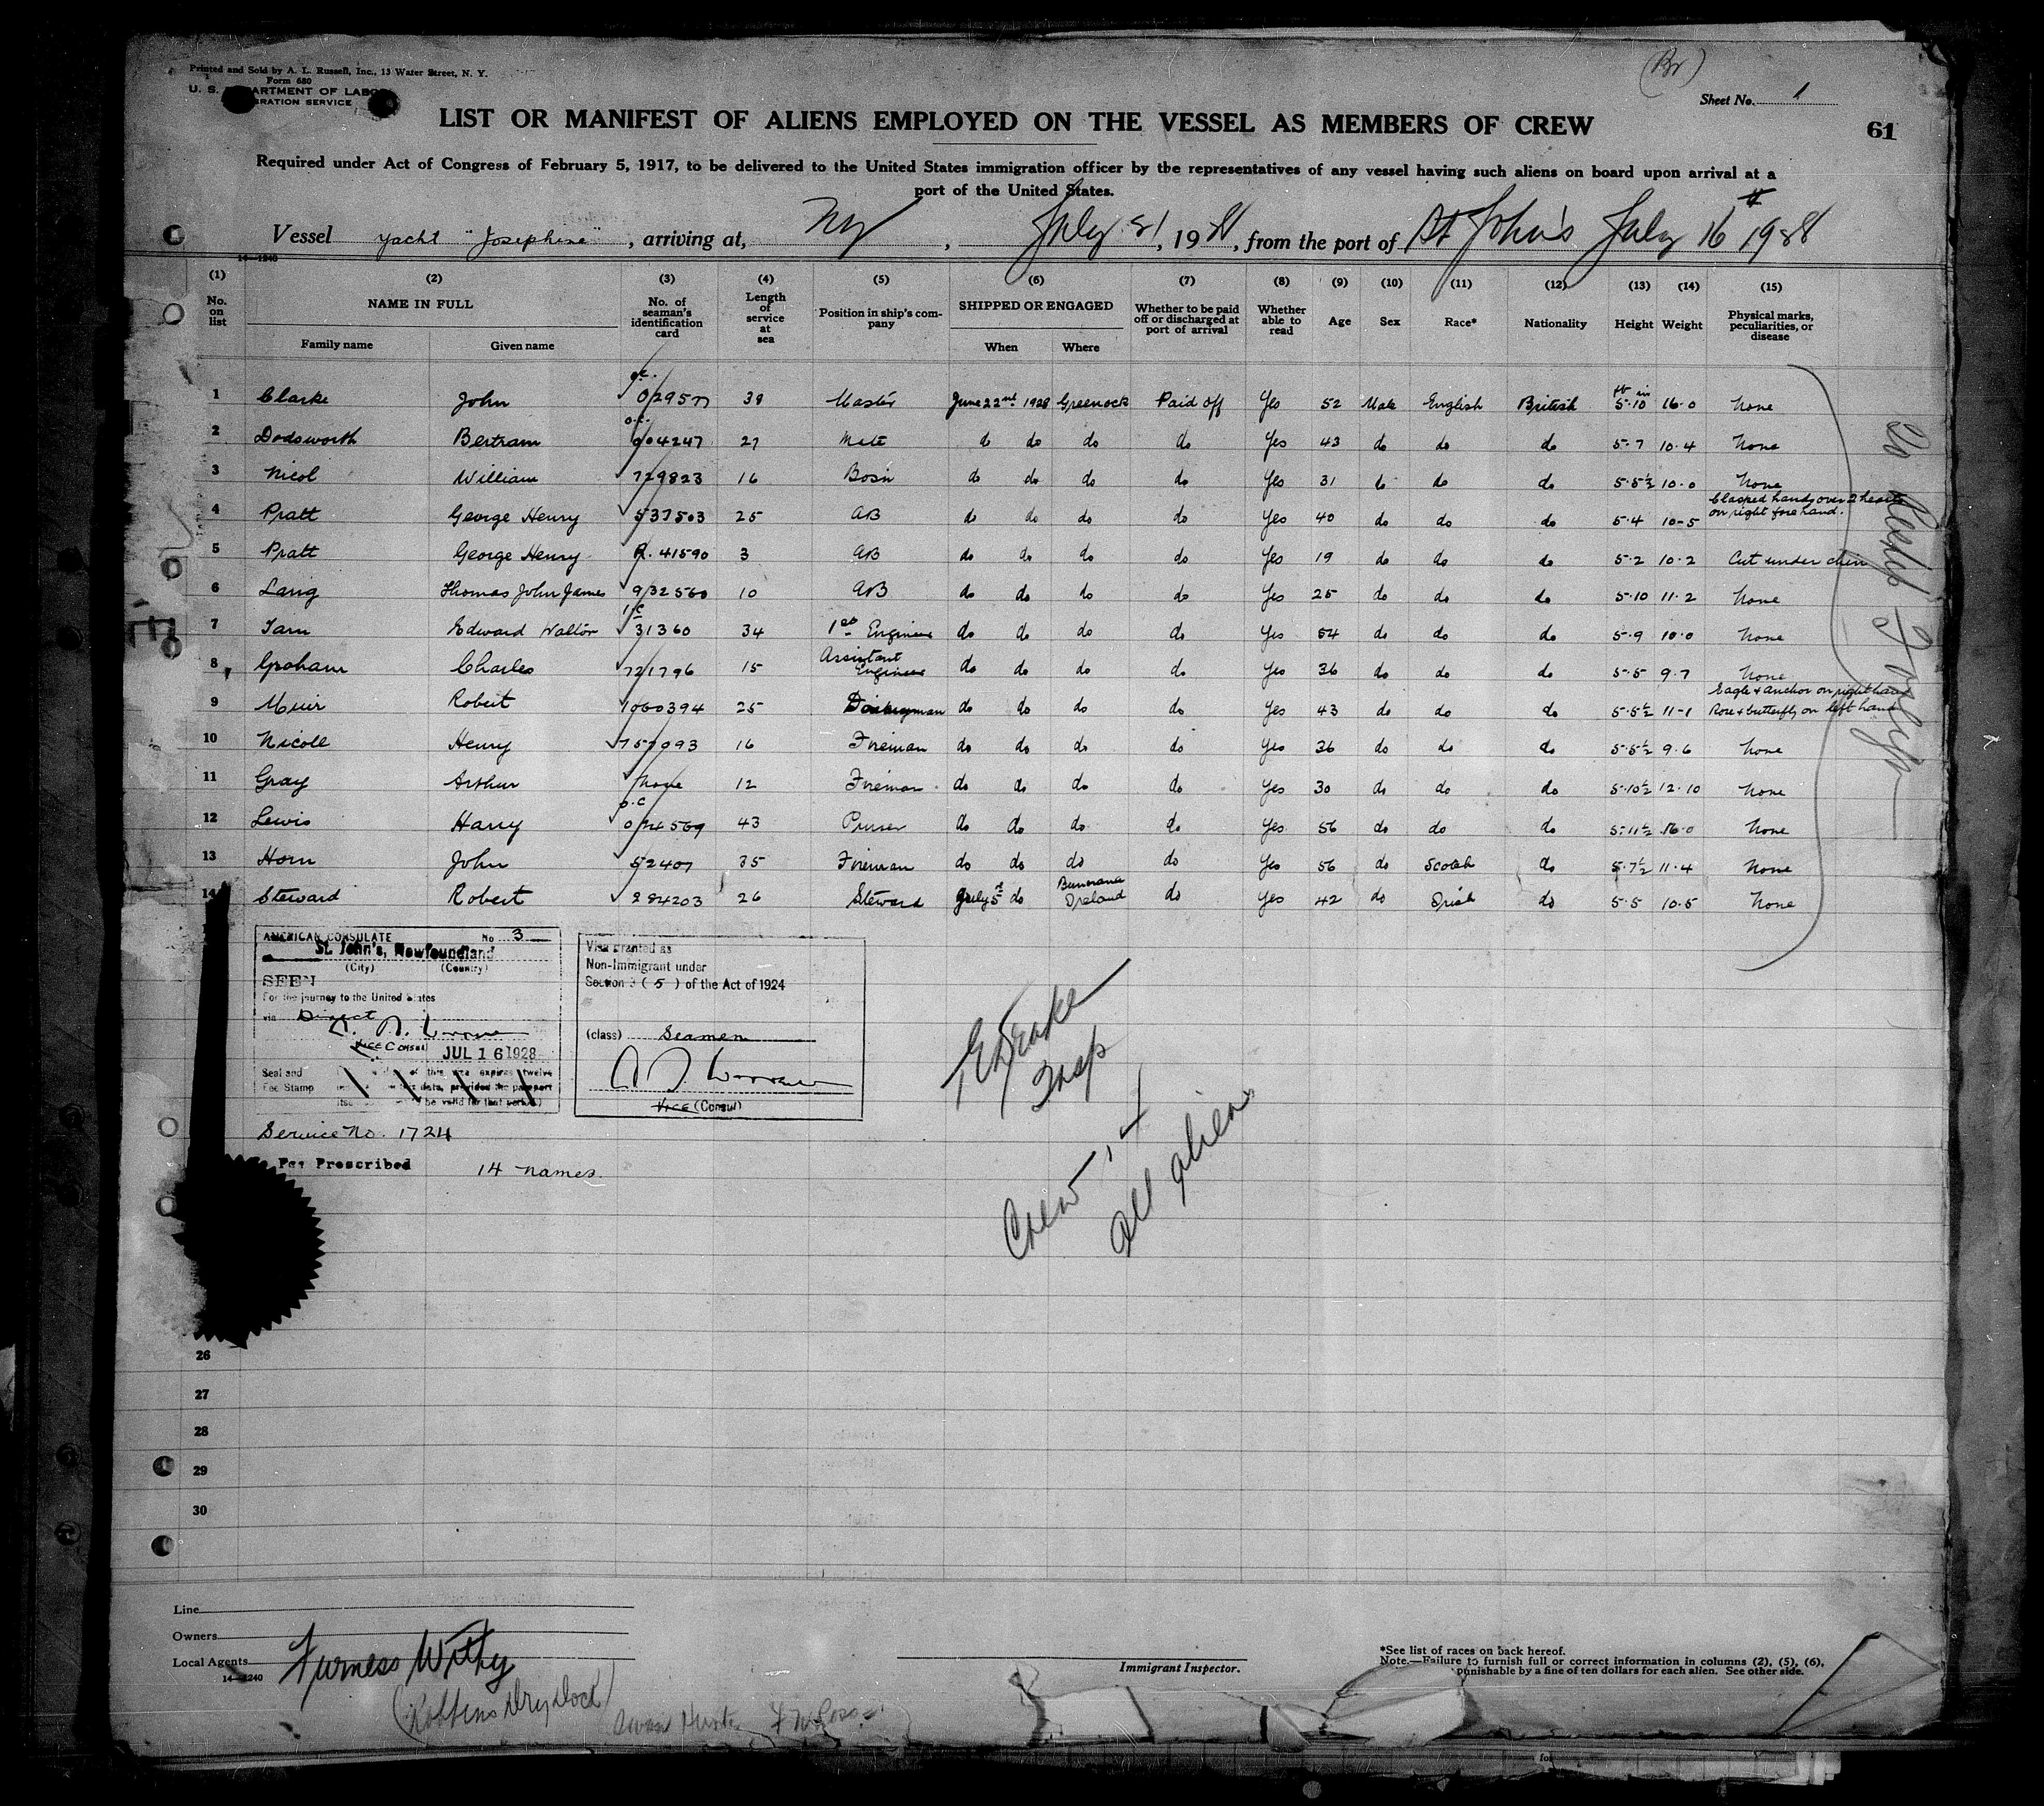 Printed and Sold by A. L. Russell, Inc., 13 Water Street, N. Y.
Form 680
U. S. DEPARTMENT OF LABOR
IMMIGRATION SERVICE
(Br)
Sheet No. 1
LIST OR MANIFEST OF ALIENS EMPLOYED ON THE VESSEL AS MEMBERS OF CREW
61
Required under Act of Congress of February 5, 1917, to be delivered to the United States immigration officer by the representatives of any vessel having such aliens on board upon arrival at a
port of the United States.
Vessel yacht "Josephine", arriving at, Ny, July 21, 1928, from the port of St John's July 16th 1928
14-1240
(1) (2) (3) (4) (5) (6) (7) (8) (9) (10) (11) (12) (13) (14) (15)
No. on list NAME IN FULL Family name Given name No. of seaman's identification card Length of service at sea Position in ship's company SHIPPED OR ENGAGED When Where Whether to be paid off or discharged at port of arrival Whether able to read Age Sex Race* Nationality Height Weight Physical marks, peculiarities, or disease
1 Clarke John 38 Master June 22nd 1928 Greenock Paid off Yes 52 Male English British 5-10 16-0 None
2 Dodsworth Bertram 004247 27 Mate do do do do Yes 43 do do do 5-7 10-4 None
3 Nicol William 729823 16 Bosn do do do do Yes 31 do do do 5-5½ 10-0 None
4 Pratt George Henry 537503 25 AB do do do do Yes 40 do do do 5-4 10-5 Clasped hands over 2 hearts on right fore hand.
5 Pratt George Henry R. 41590 3 AB do do do do Yes 19 do do do 5-2 10-2 Cut under chin
6 Lang Thomas John James 932560 10 AB do do do do Yes 25 do do do 5-10 11-2 None
7 Tarn Edward Walter 31360 34 1st Engineer do do do do Yes 54 do do do 5-9 10-0 None
8 Graham Charles 721796 15 Assistant Engineer do do do do Yes 36 do do do 5-5 9-7 None
9 Muir Robert 1060394 25 Donkeyman do do do do Yes 43 do do do 5-5½ 11-1 Eagle & anchor on right hand Rose & butterfly on left hand
10 Nicoll Henry 757093 16 Fireman do do do do Yes 36 do do do 5-5½ 9-6 None
11 Gray Arthur None 12 Fireman do do do do Yes 30 do do do 5-10½ 12-10 None
12 Lewis Harry 024569 43 Purser do do do do Yes 56 do do do 5-11½ 16-0 None
13 Horn John 52407 35 Fireman do do do do Yes 56 do Scotch do 5-7½ 11-4 None
14 Steward Robert 284203 26 Steward July 5th do Buncrana Ireland do Yes 42 do Irish do 5-5 10-5 None
AMERICAN CONSULATE No 3
St. John's, Newfoundland
(City) (Country)
SEEN
For the journey to the United States
via Direct
Vice Consul JUL 16 1928
Seal and
Fee Stamp
Visa granted as
Non-Immigrant under
Section 3 (5) of the Act of 1924
(class) Seamen
Vice (Consul)
Service No. 1724
Fee Prescribed 14 names.
Insp
Crew 14
all alien
26
27
28
29
30
Line
Owners
Local Agents Furness Withy
14-1240
(Robbins Dry Dock)
Immigrant Inspector.
*See list of races on back hereof.
Note.—Failure to furnish full or correct information in columns (2), (5), (6),
punishable by a fine of ten dollars for each alien. See other side.